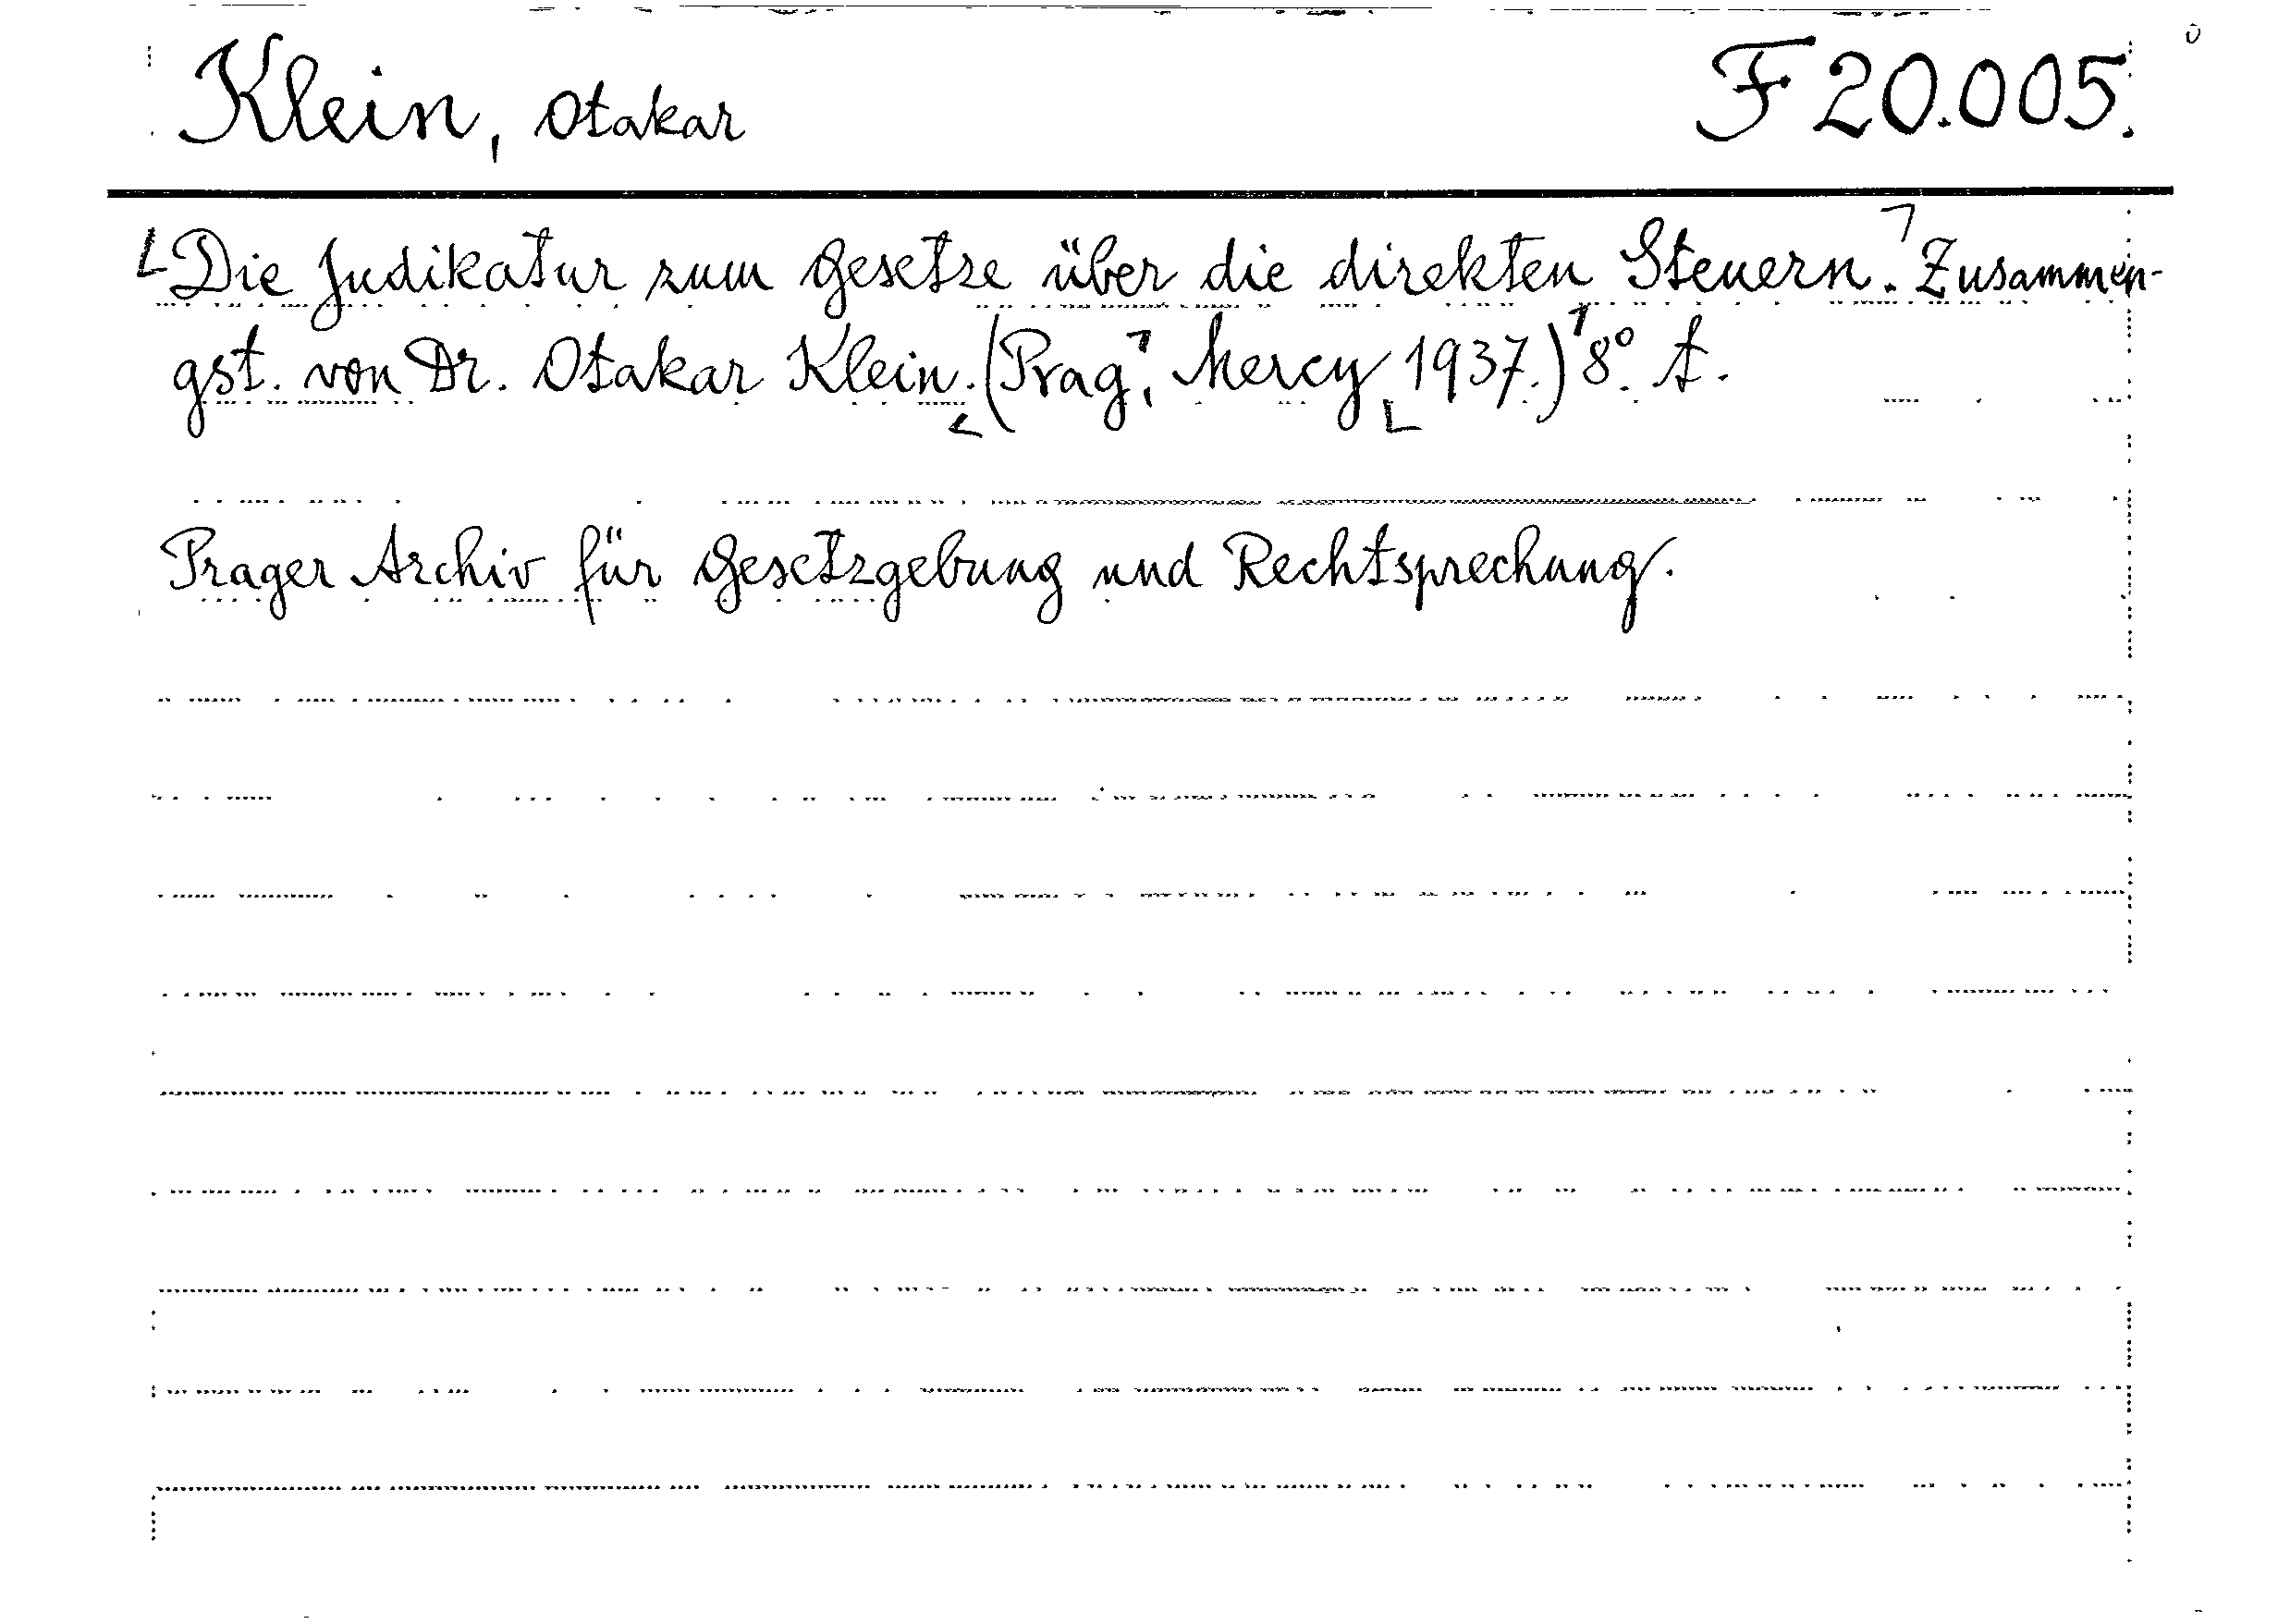 Klein, Otakar F 20.005.
Die Judikatur zum Gesetze über die direkten Steuern. Zusammen-
gst. von Dr. Otakar Klein. (Prag, Mercy 1937.) 8°. A.
Prager Archiv für Gesetzgebung und Rechtsprechung.